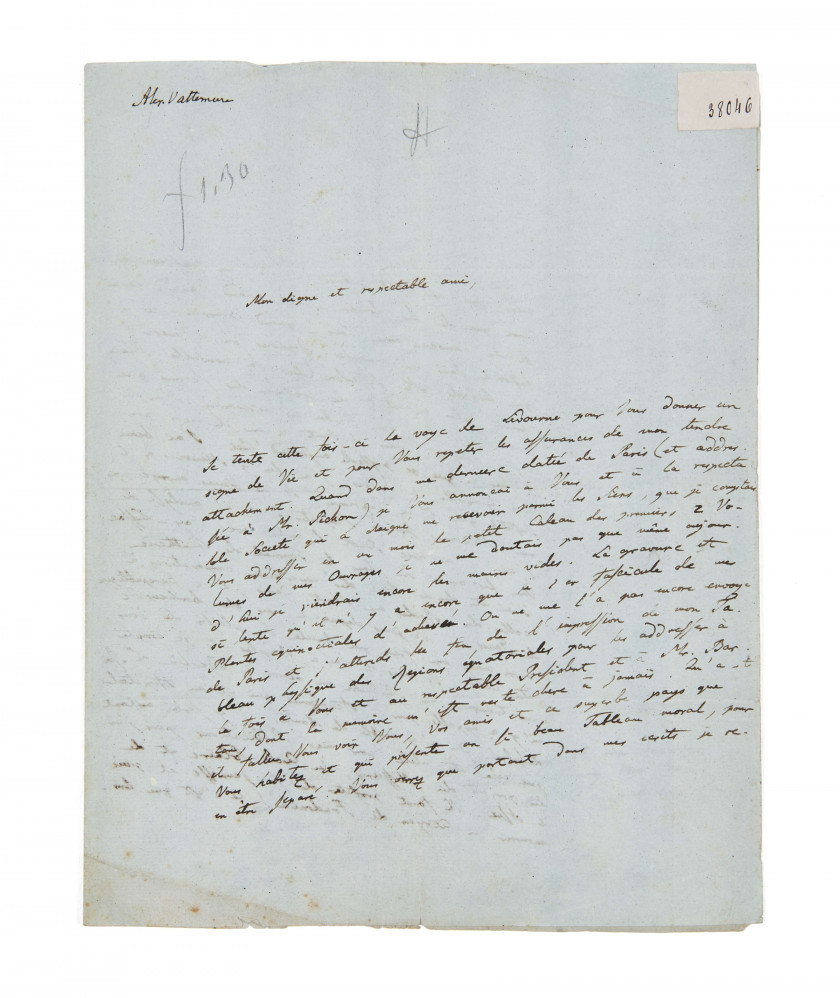 Alex. Vattemare
38046
f 1,30
Mon digne et respectable ami,
Je tente cette fois-ci la voye de Livourne pour Vous donner un
signe de Vie et pour Vous repeter les assurances de mon tendre
attachement. Quand dans ma derniere datée de Paris (et addres-
sée à Mr. Pichon) je Vous annoncai à Vous et à la respecta
ble Societé qui a daigné me recevoir parmi les Siens, que je comptais
Vous addresser en un mois le petit Cadeau des premiers 2 Vo-
lumes de mes Ouvrages je ne me doutais pas que même aujour-
d'hui je viendrais encore les mains vides. La gravure est
si lente qu'il n'y a encore que le 1er fascicule de mes
Plantes equinoctiales d'achevé. On ne me l'a pas encore envoyé
de Paris et j'attends la fin de l'impression de mon Ta-
bleau physique des Regions equatoriales pour les addresser à
la fois à Vous et au respectable President et à Mr. Bar-
ton, dont la memoire m'est restée chere à jamais. Qu'a-t-
il fallu Vous voir Vous, Vos amis et ce superbe pays que
Vous habitez et qui présente un si beau Tableau moral, pour
en être separé. Vous verrez que partout dans mes ecrits je re-